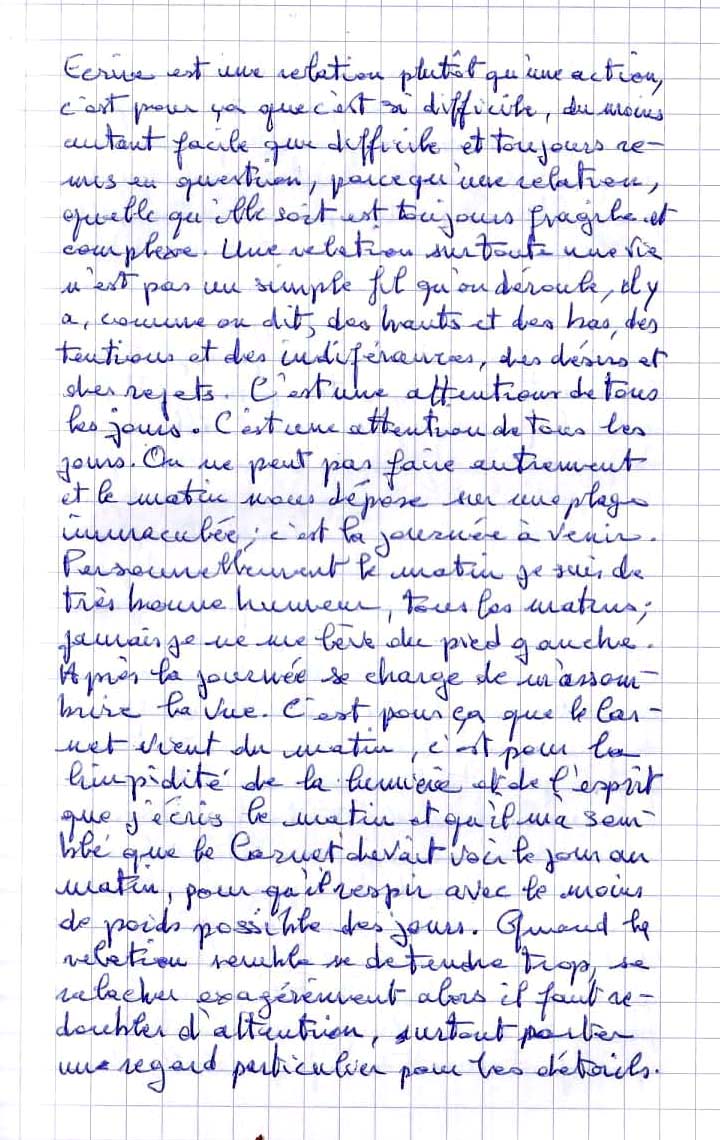 Ecrire est une relation plutôt qu'une action,
c'est pour ça que c'est si difficile, du moins
autant facile que difficile et toujours re-
mis en question, parce qu'une relation,
quelle qu'elle soit est toujours fragile et
complexe. Une relation sur toute une vie
n'est pas un simple fil qu'on déroule, il y
a, comme on dit, des hauts et des bas, des
tentions et des indiférances, des désirs et
des rejets. C'est une attention de tous
les jours. C'est une attention de tous les
jours. On ne peut pas faire autrement
et le matin nous dépose sur une plage
immaculée ; c'est la journée à venir.
Personnellement le matin je suis de
très bonne humeur, tous les matins ;
jamais je ne me lève du pied gauche.
Après la journée se charge de m'assom-
brire la vue. C'est pour ça que le Car-
net vient du matin, c'est pour la
limpidité de la lumière et de l'esprit
que j'écris le matin et qu'il m'a sem-
blé que le Carnet devait voir le jour au
matin, pour qu'il respir avec le moins
de poids possible des jours. Quand la
relation semble se detendre trop, se
relacher exagérément alors il faut re-
doubler d'attention, surtout porter
une regard particulier pour les détails.